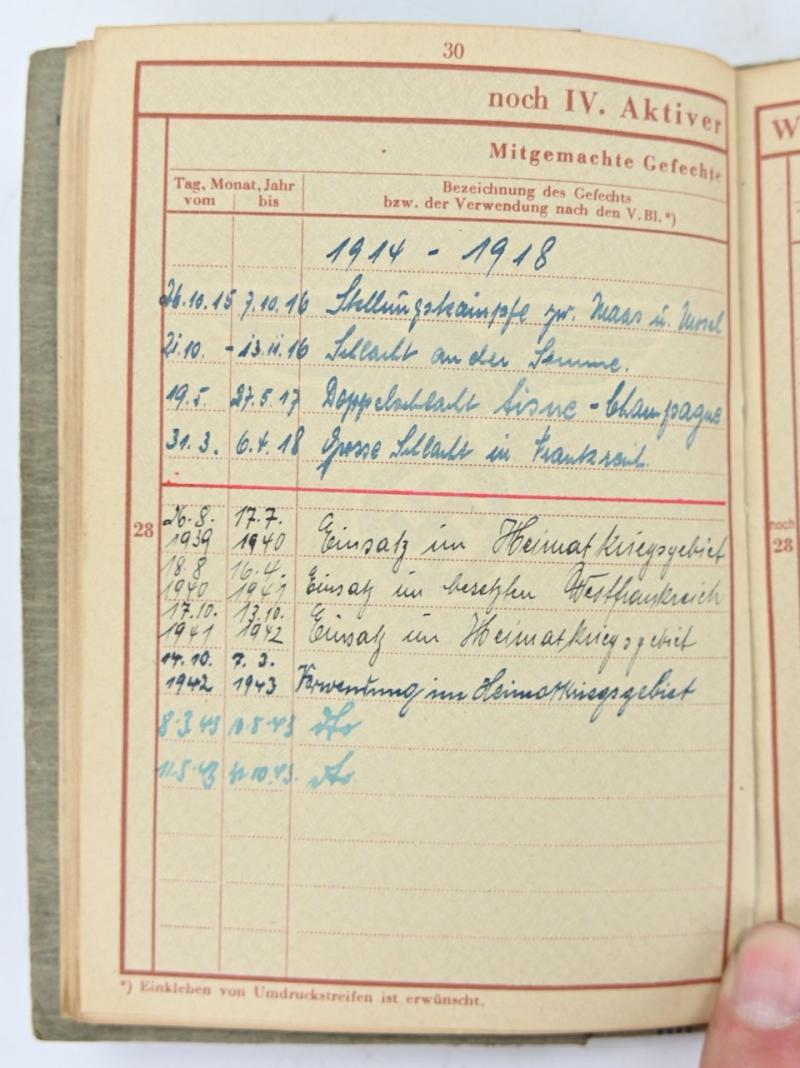 30
noch IV. Aktiver
Mitgemachte Gefechte
Tag, Monat, Jahr
vom bis
Bezeichnung des Gefechts
bzw. der Verwendung nach den V.Bl.*)
1914 - 1918
26.10.15 7.10.16 Stellungskämpfe zw. Maas u. Mosel
21.10. - 13.11.16 Schlacht an der Somme.
19.5. 27.5.17 Doppelschlacht Aisne - Champagne
31.3. 6.4.18 Grosse Schlacht in Frankreich.
28
26.8. 17.7.
1939 1940 Einsatz im Heimatkriegsgebiet
18.8 16.4.
1940 1941 Einsatz im besetzten Westfrankreich
17.10. 13.10.
1941 1942 Einsatz im Heimatkriegsgebiet
14.10. 7.3.
1942 1943 Verwendung im Heimatkriegsgebiet
8.3.43 10.5.43 dto
11.5.43 dto
*) Einkleben von Umdruckstreifen ist erwünscht.
W
noch
28